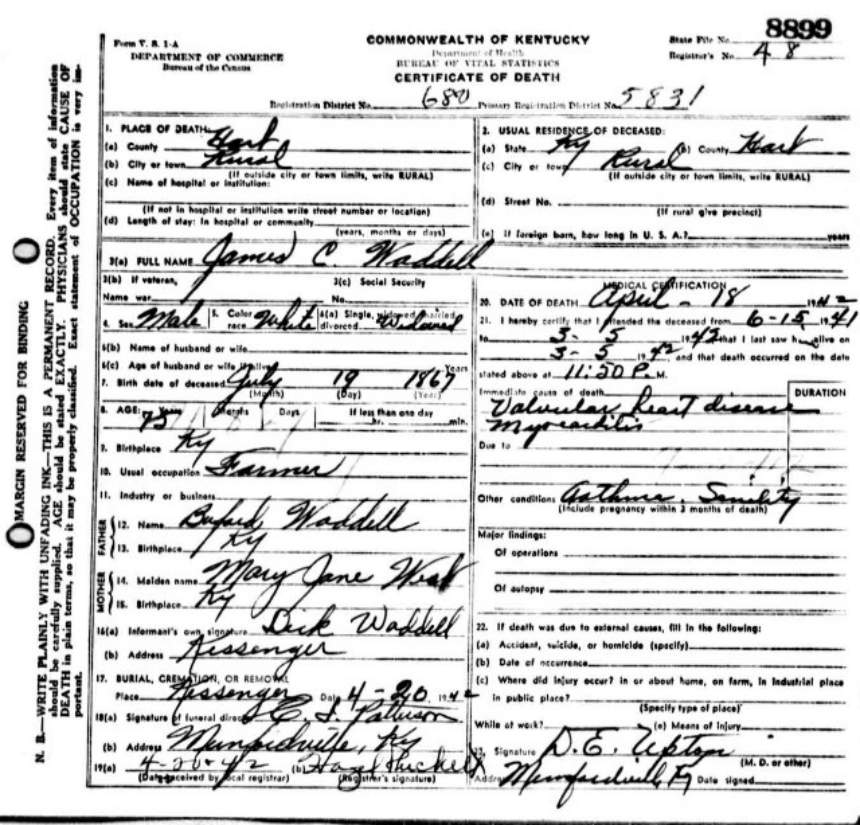 8899
Form V. S. 1-A
DEPARTMENT OF COMMERCE
Bureau of the Census
COMMONWEALTH OF KENTUCKY
Department of Health
BUREAU OF VITAL STATISTICS
CERTIFICATE OF DEATH
State File No.
Registrar's No. 48
Registration District No. 680 Primary Registration District No. 5831
MARGIN RESERVED FOR BINDING
N. B.—WRITE PLAINLY WITH UNFADING INK—THIS IS A PERMANENT RECORD. Every item of information
should be carefully supplied. AGE should be stated EXACTLY. PHYSICIANS should state CAUSE OF
DEATH in plain terms, so that it may be properly classified. Exact statement of OCCUPATION is very im-
portant.
1. PLACE OF DEATH:
(a) County Hart
(b) City or town Rural
(If outside city or town limits, write RURAL)
(c) Name of hospital or institution:
(If not in hospital or institution write street number or location)
(d) Length of stay: In hospital or community
(years, months or days)
2. USUAL RESIDENCE OF DECEASED:
(a) State Ky (b) County Hart
(c) City or town Rural
(If outside city or town limits, write RURAL)
(d) Street No.
(If rural give precinct)
(e) If foreign born, how long in U. S. A.? years
3(a) FULL NAME James C. Waddell
3(b) If veteran, 3(c) Social Security
Name war No.
4. Sex Male 5. Color race White 6(a) Single, widowed married divorced Widowed
6(b) Name of husband or wife
6(c) Age of husband or wife if alive Years
7. Birth date of deceased July 19 1867
(Month) (Day) (Year)
8. AGE: Years Months Days If less than one day
hr. min.
9. Birthplace Ky
10. Usual occupation Farmer
11. Industry or business
FATHER
12. Name Buford Waddell
13. Birthplace Ky
MOTHER
14. Maiden name Mary Jane West
15. Birthplace Ky
16(a) Informant's own signature Dick Waddell
(b) Address Kessenger
17. BURIAL, CREMATION, OR REMOVAL
Place Kessenger Date 4-20 1942
18(a) Signature of funeral director
(b) Address Munfordville, Ky
19(a) 4-20-42 (b) Hazel
(Date received by local registrar) (Registrar's signature)
MEDICAL CERTIFICATION
20. DATE OF DEATH April - 18 1942
21. I hereby certify that I attended the deceased from 6-15, 1941
to 3-5 1942 that I last saw h alive on
3-5 1942 and that death occurred on the date
stated above at 11:50 P. M.
Immediate cause of death DURATION
Valvular heart disease
Myocarditis
Due to
Other conditions Asthma. Senility
(Include pregnancy within 3 months of death)
Major findings:
Of operations
Of autopsy
22. If death was due to external causes, fill in the following:
(a) Accident, suicide, or homicide (specify)
(b) Date of occurrence
(c) Where did injury occur? in or about home, on farm, in industrial place
in public place?
(Specify type of place)
While at work? (e) Means of injury
23. Signature D. E. Upton
(M. D. or other)
Address Munfordville Ky Date signed